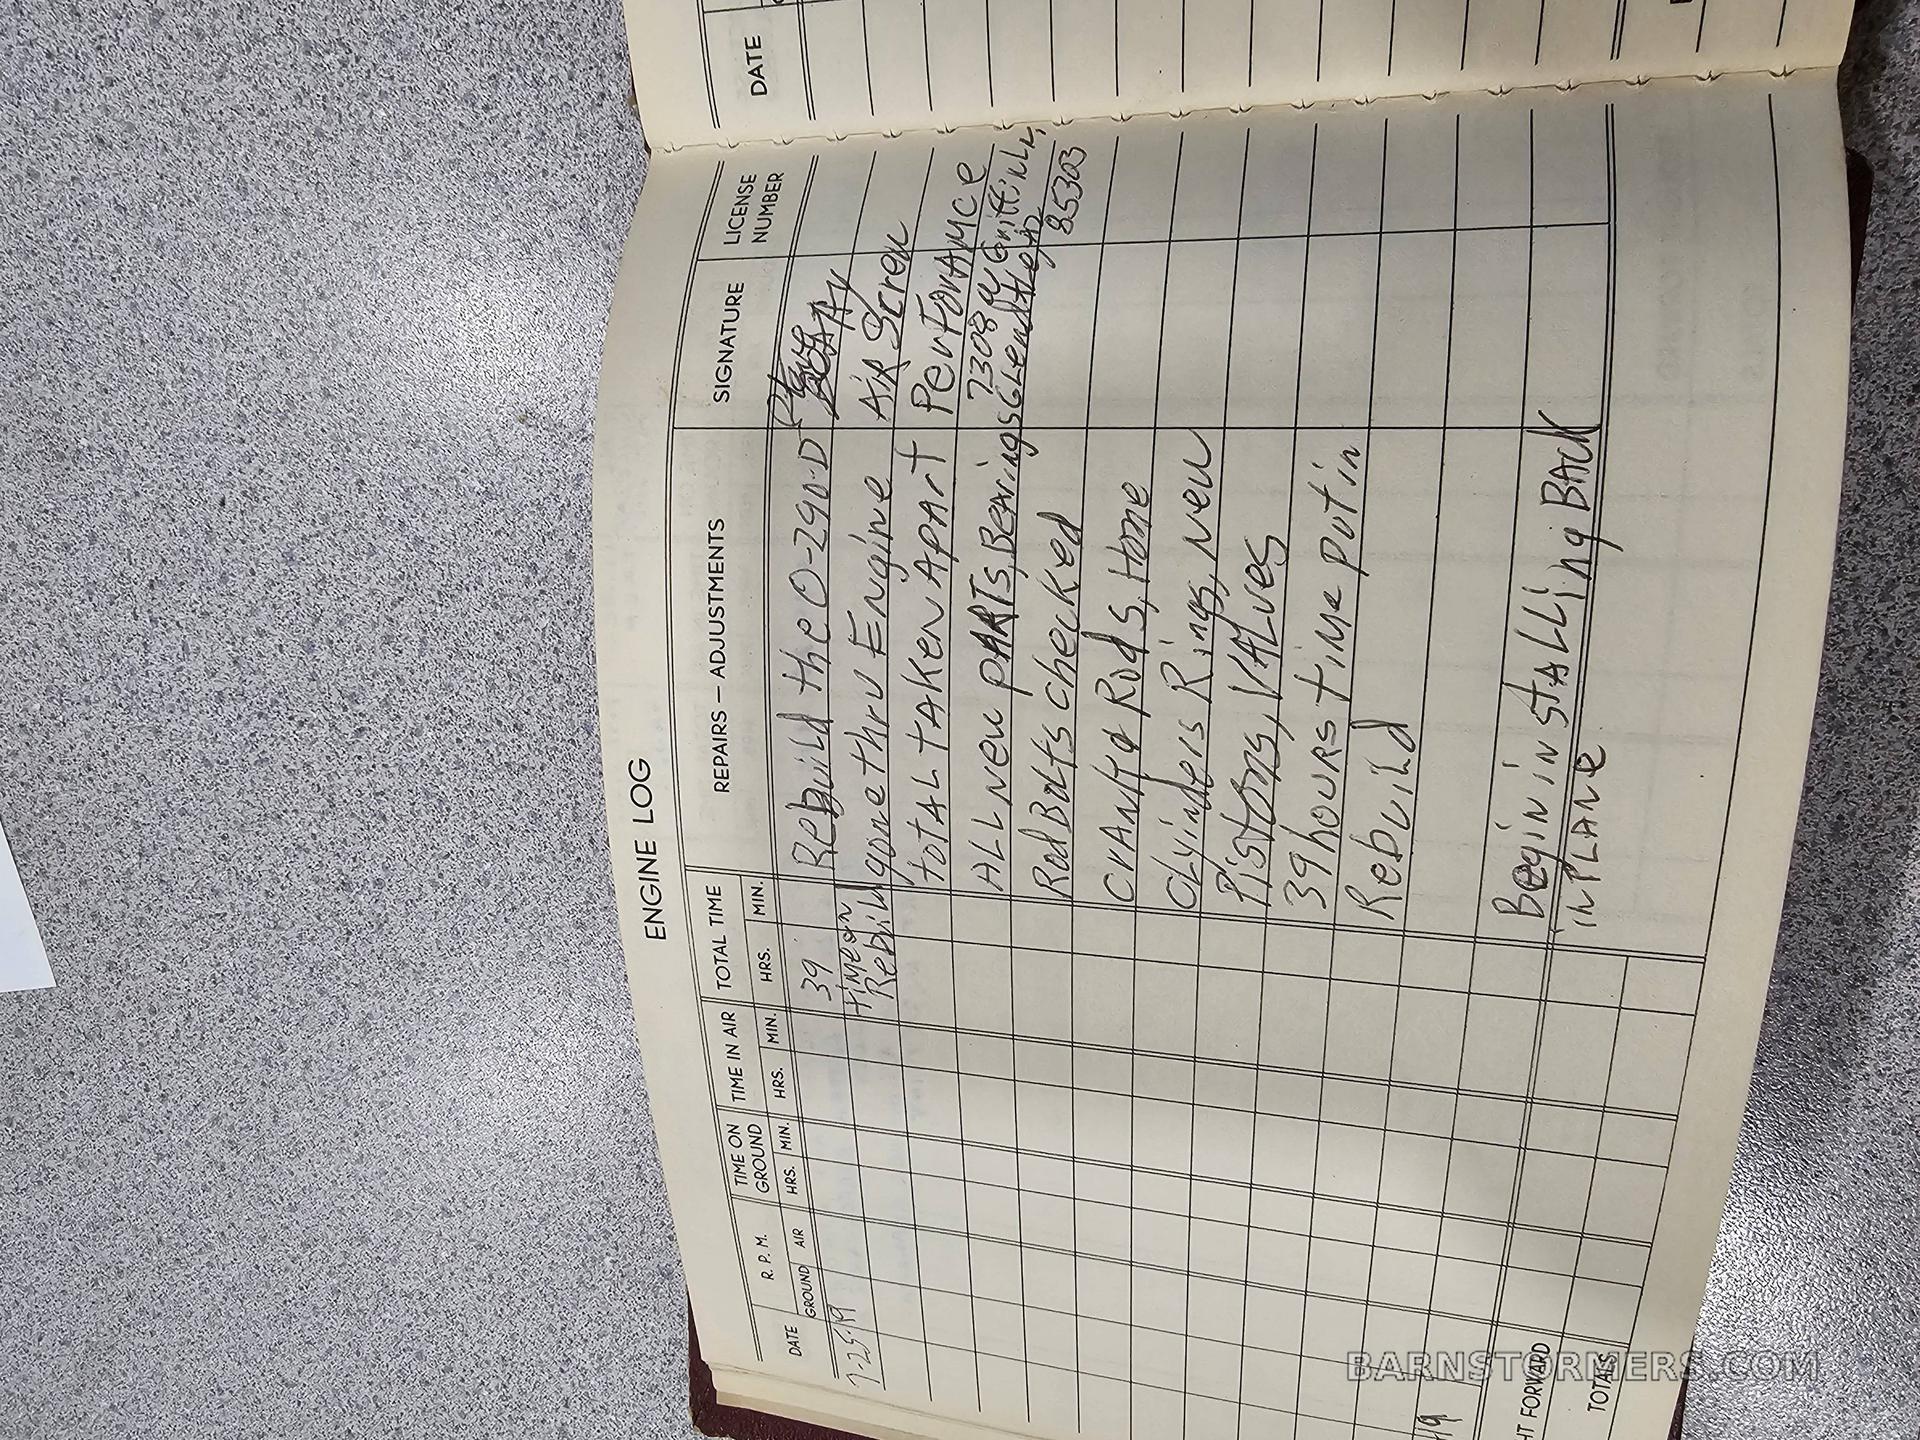 ENGINE LOG
DATE
R. P. M.
GROUND AIR
TIME ON GROUND
HRS. MIN.
TIME IN AIR
HRS. MIN.
TOTAL TIME
HRS. MIN.
REPAIRS — ADJUSTMENTS
SIGNATURE
LICENSE NUMBER
DATE
7-25-19
39
time on
Rebuild
Rebuild the O-290-D
gone thru Engine
Air Screw
totAL tAKen ApArt
PerForAMce
ALL new pARTs, BeAringS
7308 W Griffin Ln,
GLendALe AZ
85303
Rod Bolts checked
CrAnk & Rods, Hone
CLyinders Rings, new
Pistons, VALves
39 hours time put in
Rebuild
Begin instALLing BAck
in PLAne
HT FORWARD
TOTALS
BARNSTORMERS.COM